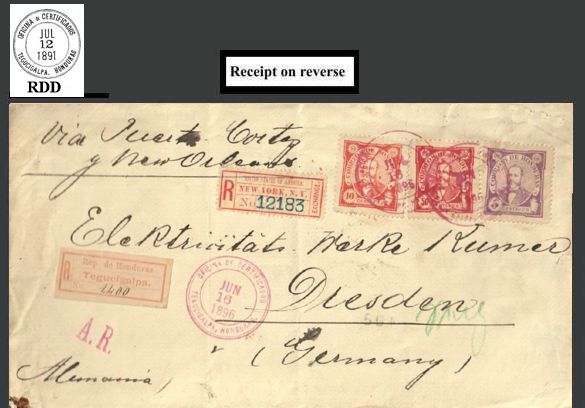 OFICINA DE CERTIFICADOS
JUL
12
1891
TEGUCIGALPA, HONDURAS
RDD
Receipt on reverse
Via Puerto Cortez
y New Orleans
R
UNITED STATES OF AMERICA
NEW YORK, N.Y.
No. 12183
10
CORREOS DE HONDURAS
Elektricitäts Werke Kumer
R
Rep. de Honduras
Tegucigalpa.
No. 1400
OFICINA DE CERTIFICADOS
JUN
16
1896
TEGUCIGALPA, HONDURAS
Dresden
A.R.
(Germany)
Alemania,